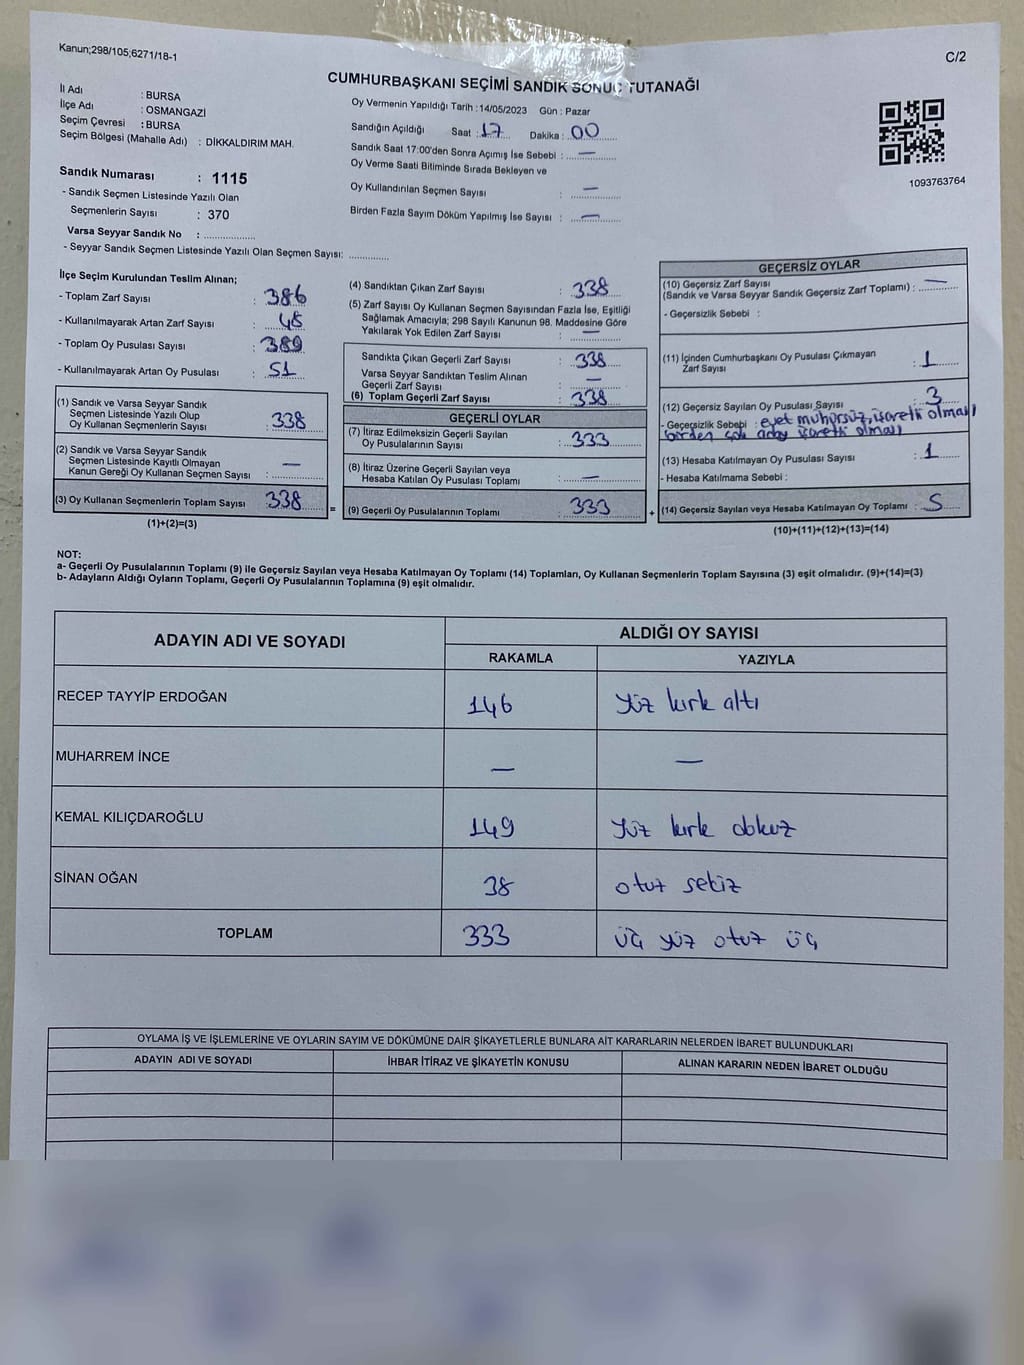 Kanun;298/105;6271/18-1
C/2
CUMHURBAŞKANI SEÇİMİ SANDIK SONUÇ TUTANAĞI
İl Adı : BURSA
İlçe Adı : OSMANGAZİ
Seçim Çevresi : BURSA
Seçim Bölgesi (Mahalle Adı) : DİKKALDIRIM MAH.
Sandık Numarası : 1115
- Sandık Seçmen Listesinde Yazılı Olan
Seçmenlerin Sayısı : 370
Varsa Seyyar Sandık No : ...............
- Seyyar Sandık Seçmen Listesinde Yazılı Olan Seçmen Sayısı: ............
Oy Vermenin Yapıldığı Tarih :14/05/2023 Gün : Pazar
Sandığın Açıldığı Saat : 17 Dakika : 00
Sandık Saat 17:00'den Sonra Açımış İse Sebebi : —
Oy Verme Saati Bitiminde Sırada Bekleyen ve
Oy Kullandırılan Seçmen Sayısı : —
Birden Fazla Sayım Döküm Yapılmış İse Sayısı : —
1093763764
İlçe Seçim Kurulundan Teslim Alınan;
- Toplam Zarf Sayısı : 386
- Kullanılmayarak Artan Zarf Sayısı : 48
- Toplam Oy Pusulası Sayısı : 389
- Kullanılmayarak Artan Oy Pusulası : 51
(1) Sandık ve Varsa Seyyar Sandık
Seçmen Listesinde Yazılı Olup
Oy Kullanan Seçmenlerin Sayısı : 338
(2) Sandık ve Varsa Seyyar Sandık
Seçmen Listesinde Kayıtlı Olmayan
Kanun Gereği Oy Kullanan Seçmen Sayısı : —
(3) Oy Kullanan Seçmenlerin Toplam Sayısı 338
(1)+(2)=(3)
=
(4) Sandıktan Çıkan Zarf Sayısı : 338
(5) Zarf Sayısı Oy Kullanan Seçmen Sayısından Fazla İse, Eşitliği
Sağlamak Amacıyla; 298 Sayılı Kanunun 98. Maddesine Göre
Yakılarak Yok Edilen Zarf Sayısı : —
Sandıkta Çıkan Geçerli Zarf Sayısı : 338
Varsa Seyyar Sandıktan Teslim Alınan
Geçerli Zarf Sayısı : —
(6) Toplam Geçerli Zarf Sayısı : 338
GEÇERLİ OYLAR
(7) İtiraz Edilmeksizin Geçerli Sayılan
Oy Pusulalarının Sayısı : 333
(8) İtiraz Üzerine Geçerli Sayılan veya
Hesaba Katılan Oy Pusulası Toplamı : —
(9) Geçerli Oy Pusulalarının Toplamı : 333
+
GEÇERSİZ OYLAR
(10) Geçersiz Zarf Sayısı
(Sandık ve Varsa Seyyar Sandık Geçersiz Zarf Toplamı) : —
- Geçersizlik Sebebi :
(11) İçinden Cumhurbaşkanı Oy Pusulası Çıkmayan
Zarf Sayısı : 1
(12) Geçersiz Sayılan Oy Pusulası Sayısı : 3
- Geçersizlik Sebebi : evet mühürsüz, işaretli olması
birden çok aday işaretli olması
(13) Hesaba Katılmayan Oy Pusulası Sayısı : 1
- Hesaba Katılmama Sebebi :
(14) Geçersiz Sayılan veya Hesaba Katılmayan Oy Toplamı : 5
(10)+(11)+(12)+(13)=(14)
NOT:
a- Geçerli Oy Pusulalarının Toplamı (9) ile Geçersiz Sayılan veya Hesaba Katılmayan Oy Toplamı (14) Toplamları, Oy Kullanan Seçmenlerin Toplam Sayısına (3) eşit olmalıdır. (9)+(14)=(3)
b- Adayların Aldığı Oyların Toplamı, Geçerli Oy Pusulalarının Toplamına (9) eşit olmalıdır.
ADAYIN ADI VE SOYADI
ALDIĞI OY SAYISI
RAKAMLA YAZIYLA
RECEP TAYYİP ERDOĞAN 146 yüz kırk altı
MUHARREM İNCE — —
KEMAL KILIÇDAROĞLU 149 yüz kırk dokuz
SİNAN OĞAN 38 otuz sekiz
TOPLAM 333 üç yüz otuz üç
OYLAMA İŞ VE İŞLEMLERİNE VE OYLARIN SAYIM VE DÖKÜMÜNE DAİR ŞİKAYETLERLE BUNLARA AİT KARARLARIN NELERDEN İBARET BULUNDUKLARI
ADAYIN ADI VE SOYADI İHBAR İTİRAZ VE ŞİKAYETİN KONUSU ALINAN KARARIN NEDEN İBARET OLDUĞU